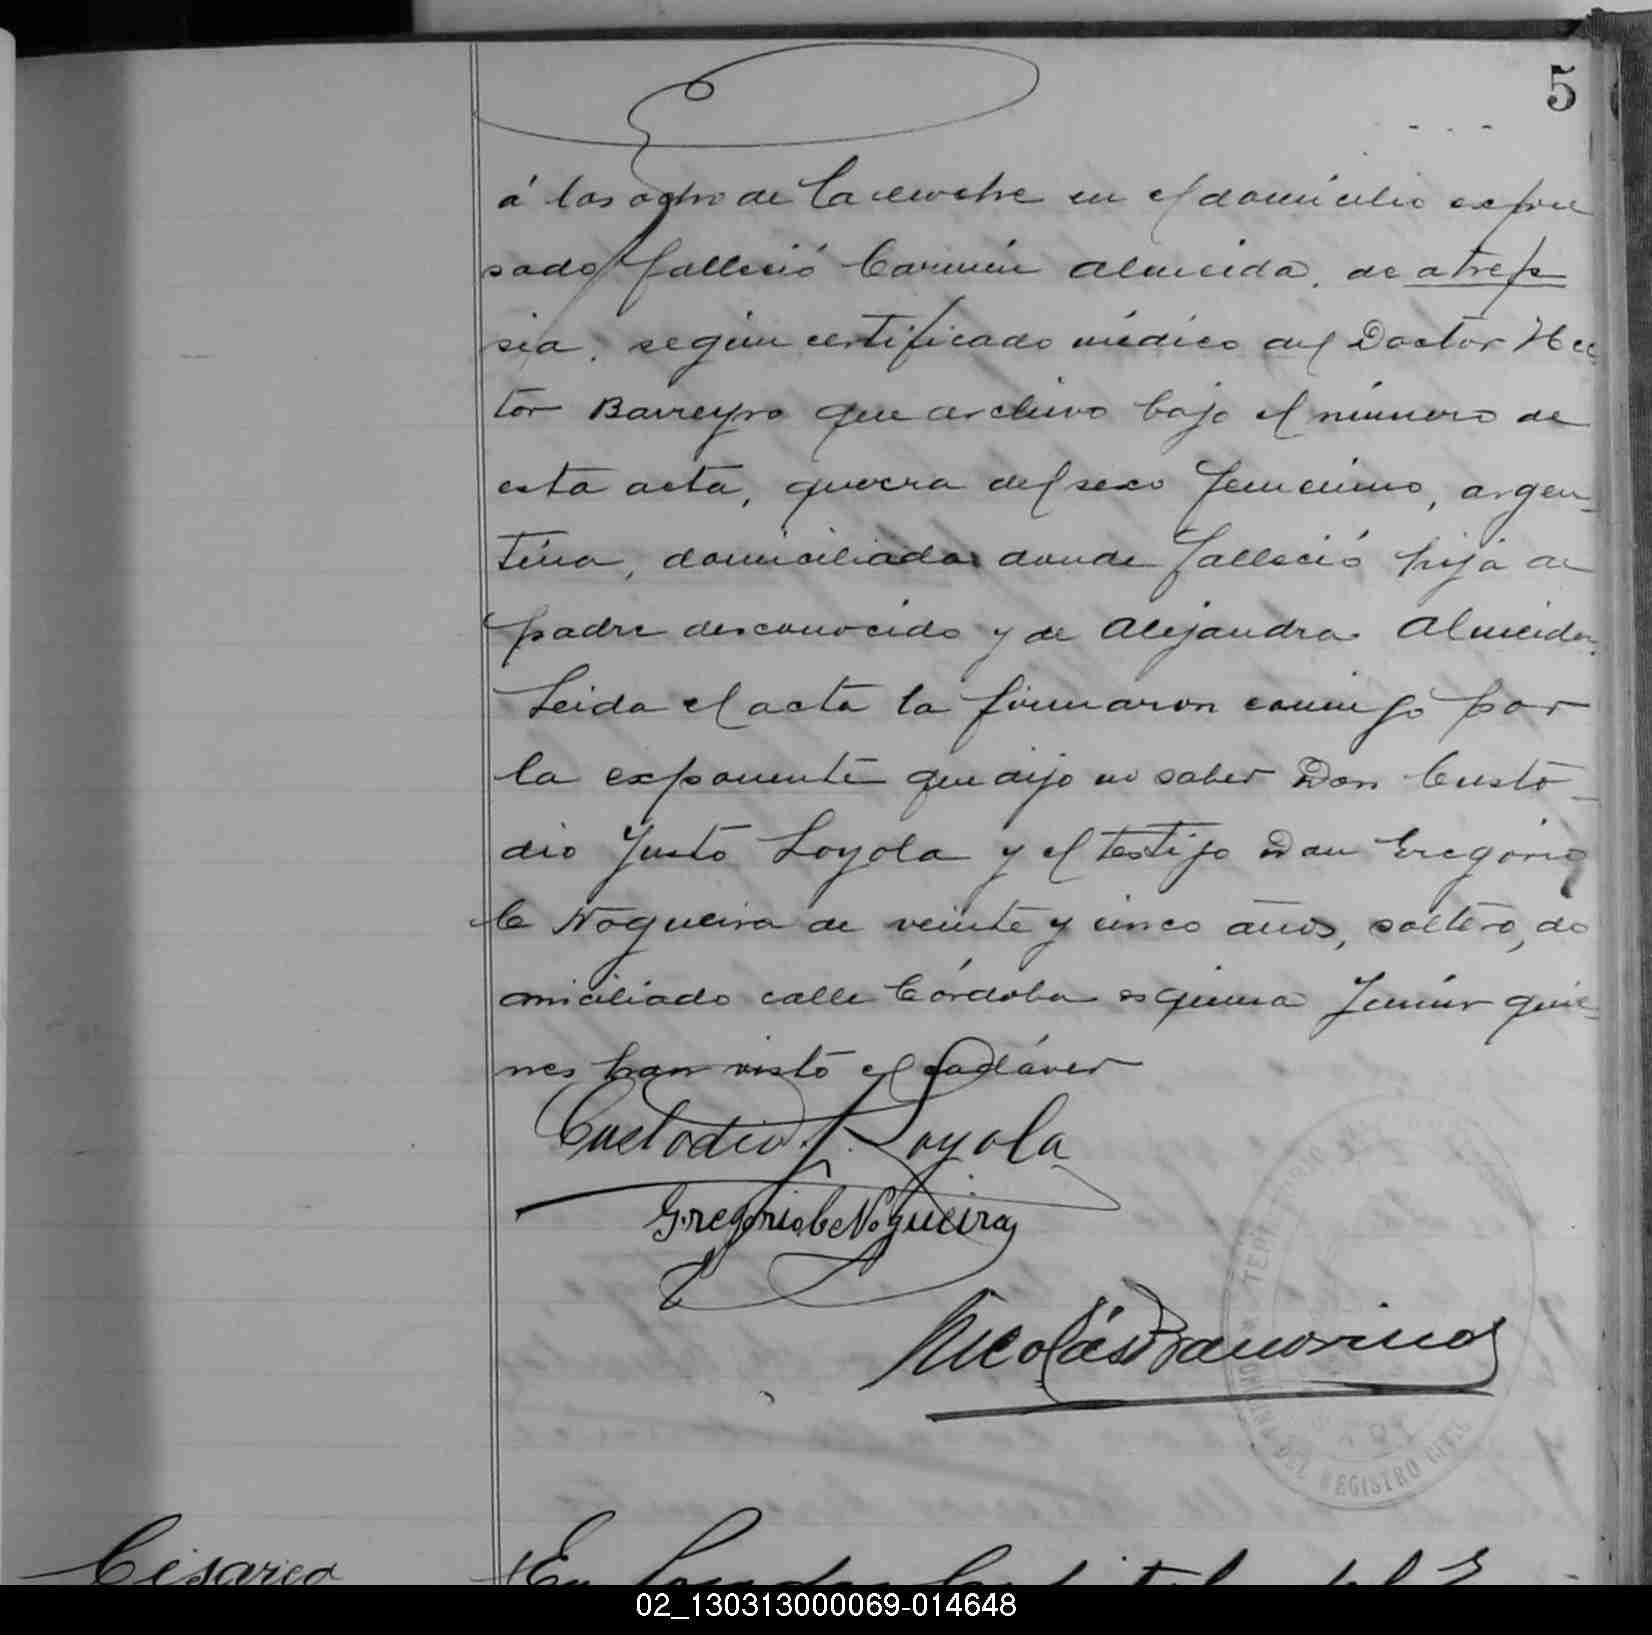 5
á las ocho de la noche en el domicilio expre
sado falleció Carmen Almeida, de atrep
sia, según certificado médico del Doctor Hec
tor Barreyro que archivo bajo el número de
esta acta, que era del sexo femenino, argen
tina, domiciliada donde falleció hija de
padre desconocido y de Alejandra Almeida.
Leida el acta la firmaron conmigo por
la exponente que dijo no saber Don Custo
dio Justo Loyola y el testigo Don Gregorio
C Nogueira de veinte y cinco años, soltero, do
miciliado calle Córdoba esquina Junín quie
nes han visto el cadáver
Custodio J. Loyola
Gregorio C Nogueira
Nicolás
DEL REGISTRO CIVIL
02_130313000069-014648